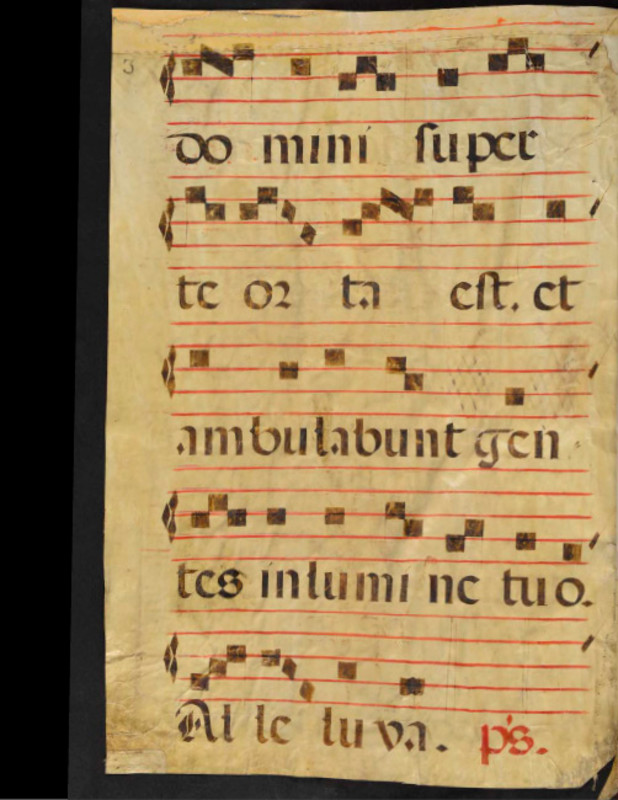 3
do mini super
te or ta est. et
ambulabunt gen
tes inlumi ne tuo.
Al le luya. ps.